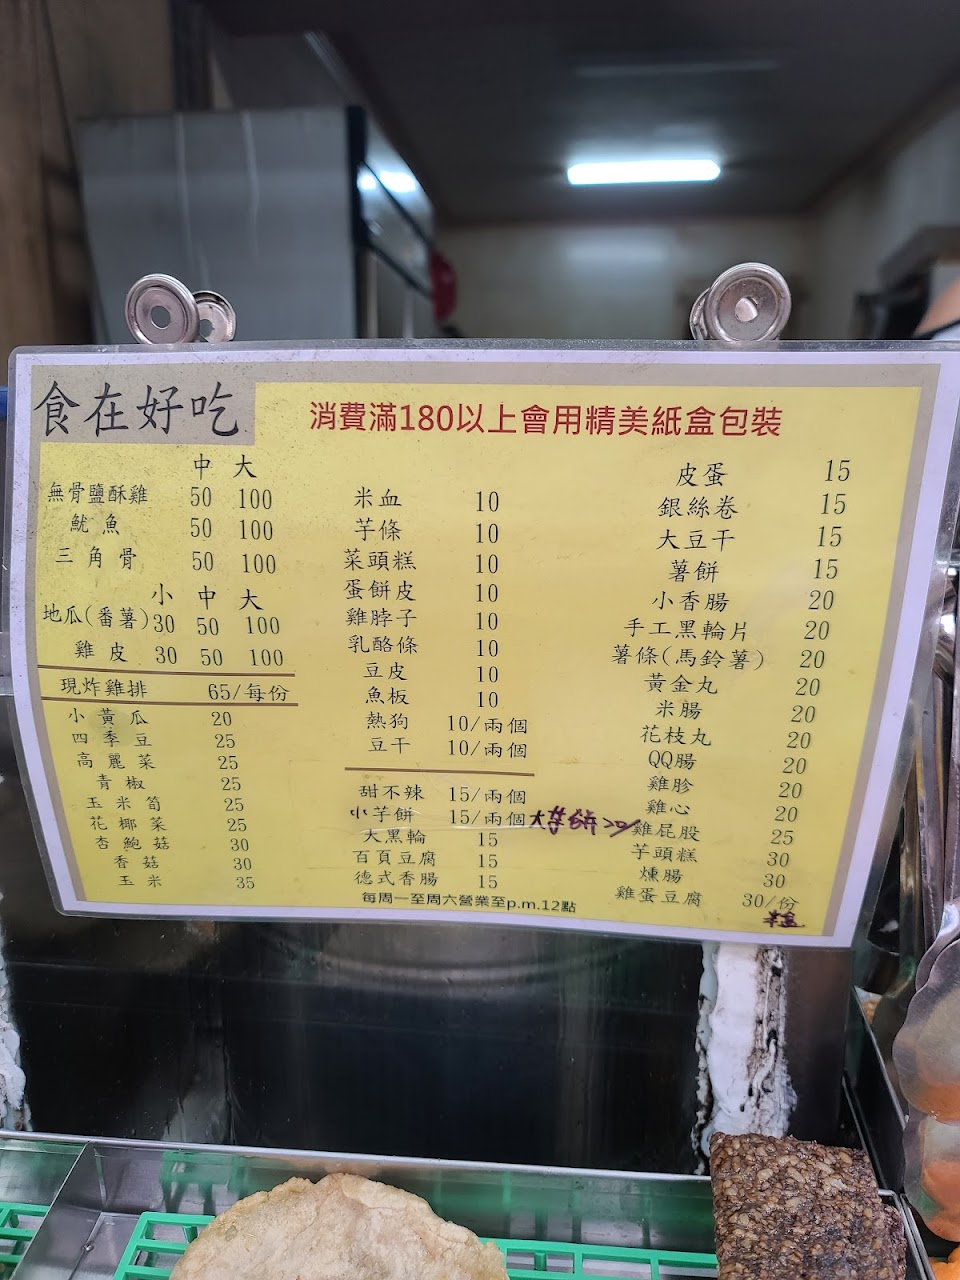 食在好吃
消費滿180以上會用精美紙盒包裝
中 大
無骨鹽酥雞 50 100
魷魚 50 100
三角骨 50 100
小 中 大
地瓜(番薯) 30 50 100
雞皮 30 50 100
現炸雞排 65/每份
小黃瓜 20
四季豆 25
高麗菜 25
青椒 25
玉米筍 25
花椰菜 25
杏鮑菇 30
香菇 30
玉米 35
米血 10
芋條 10
菜頭糕 10
蛋餅皮 10
雞脖子 10
乳酪條 10
豆皮 10
魚板 10
熱狗 10/兩個
豆干 10/兩個
甜不辣 15/兩個
小芋餅 15/兩個 大芋餅20/
大黑輪 15
百頁豆腐 15
德式香腸 15
每周一至周六營業至p.m.12點
皮蛋 15
銀絲卷 15
大豆干 15
薯餅 15
小香腸 20
手工黑輪片 20
薯條(馬鈴薯) 20
黃金丸 20
米腸 20
花枝丸 20
QQ腸 20
雞胗 20
雞心 20
雞屁股 25
芋頭糕 30
燻腸 30
雞蛋豆腐 30/份